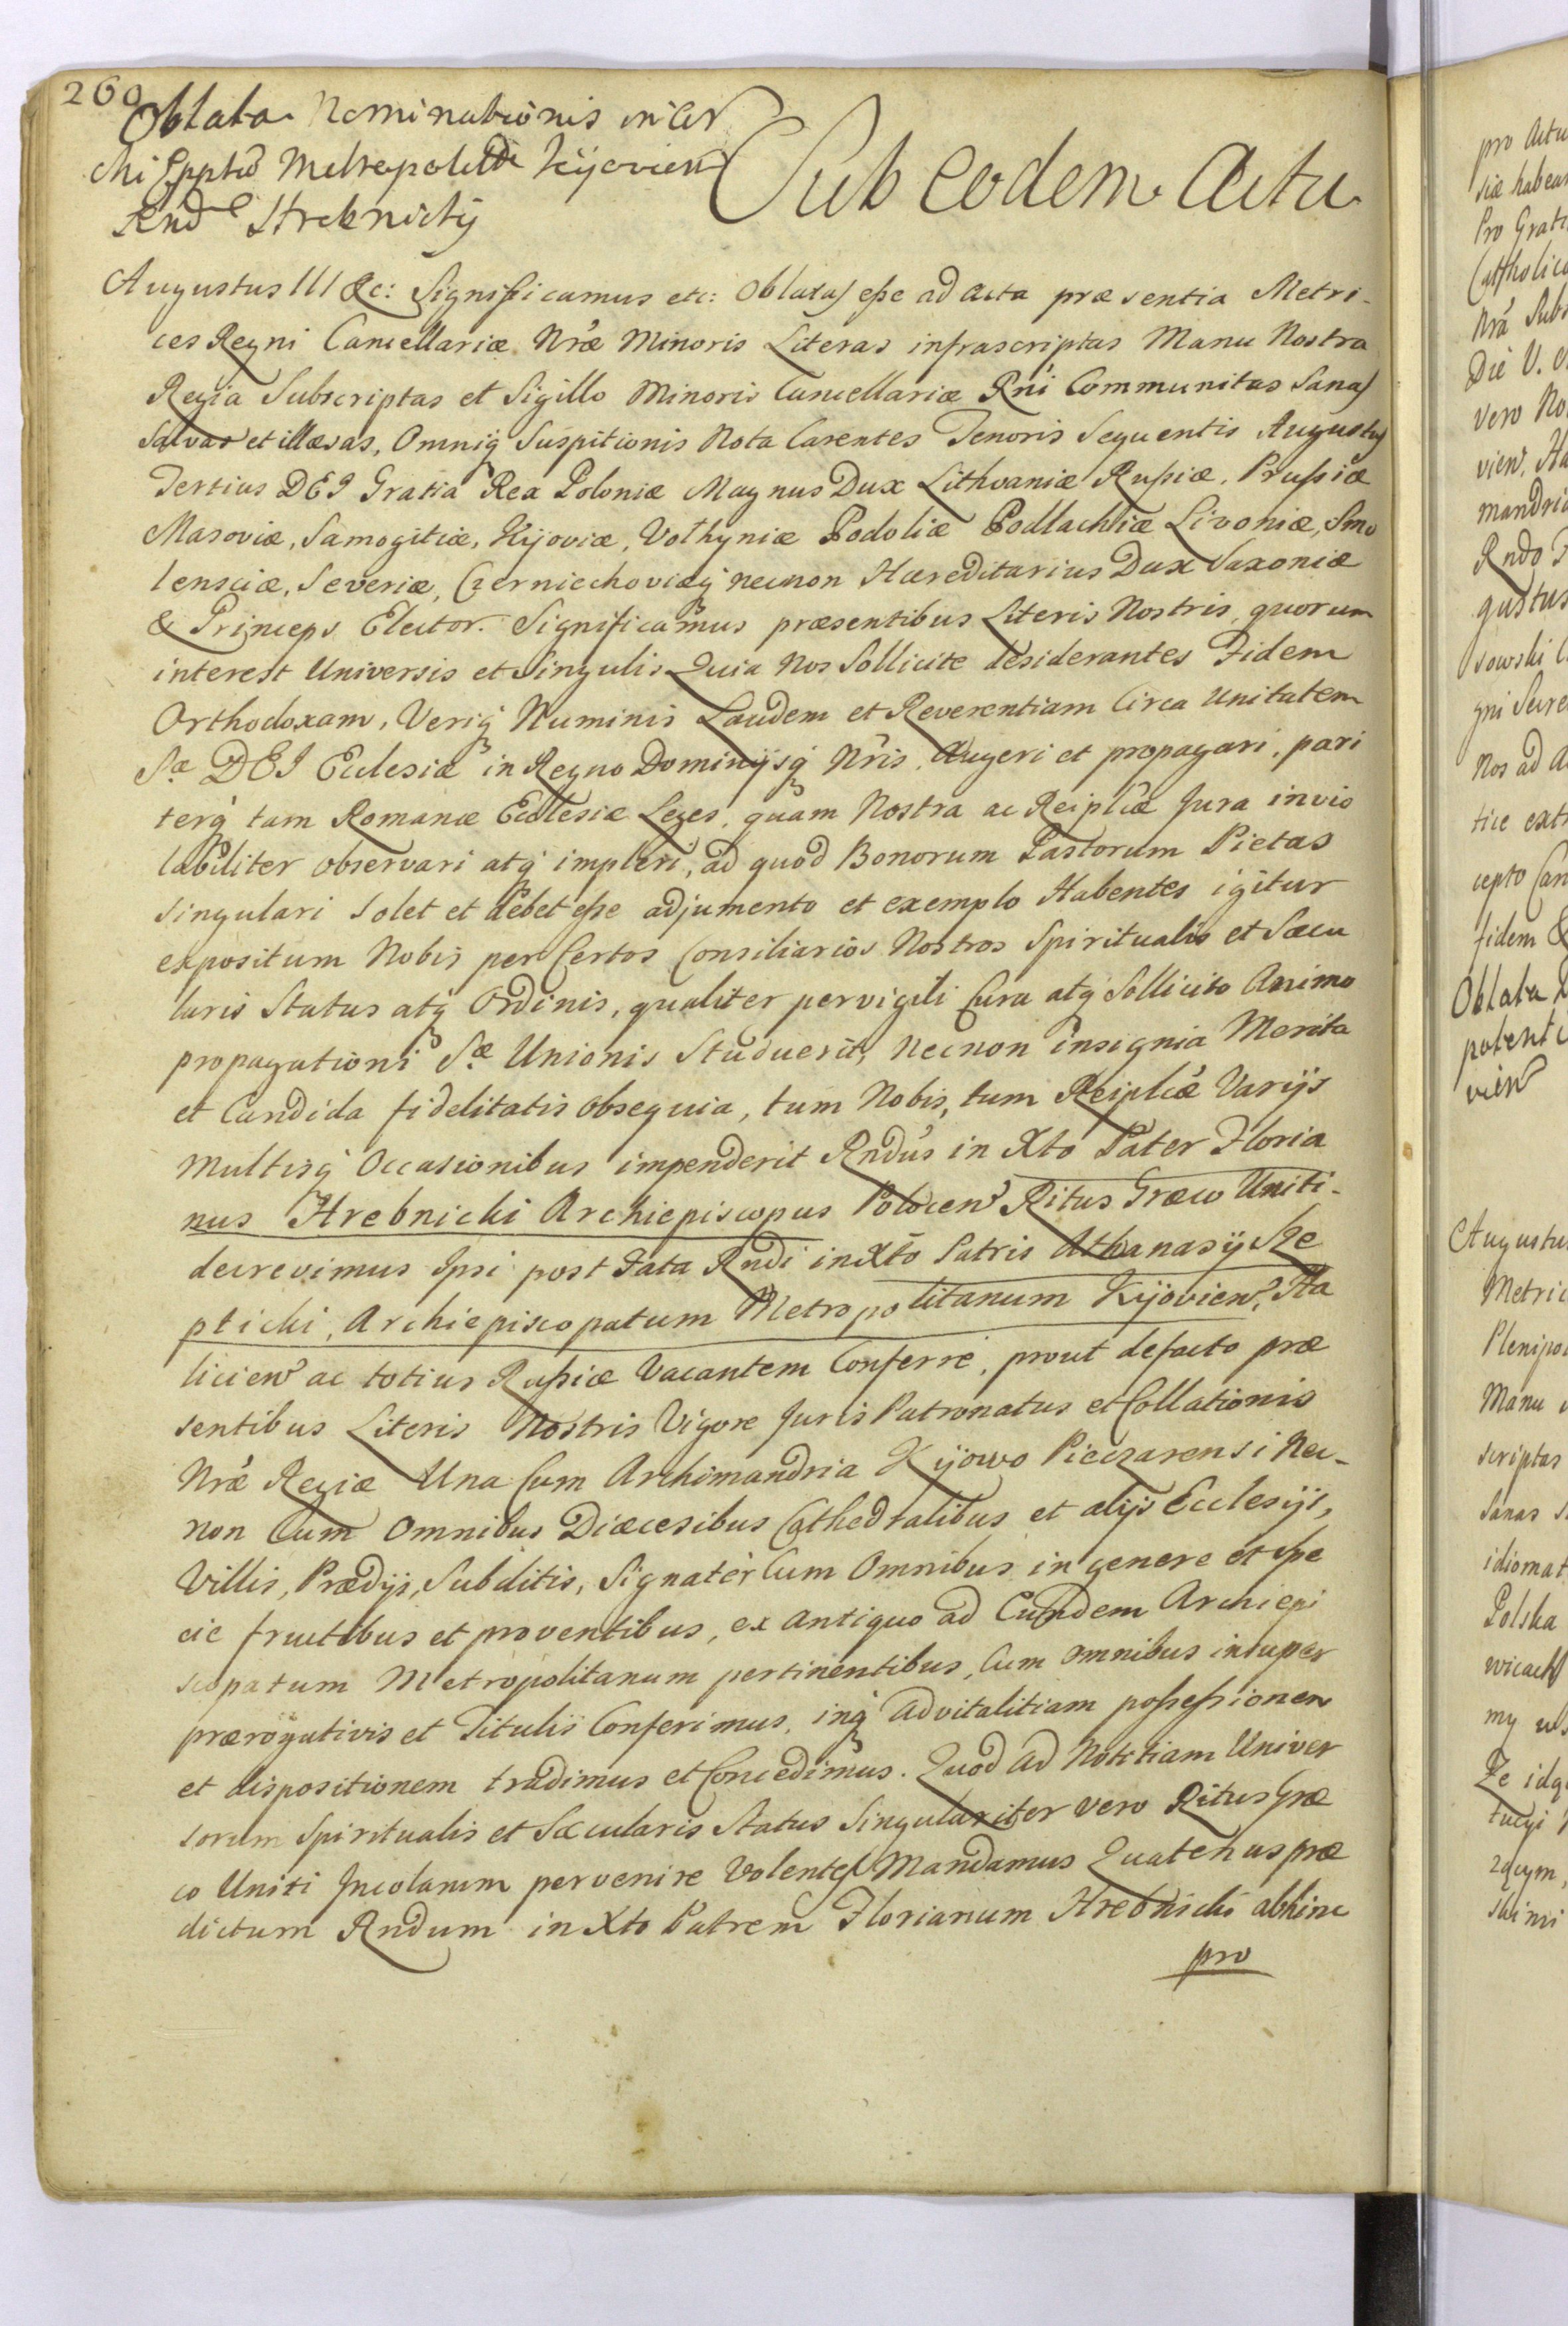 260
Oblata Nominationis in Ar
chi Epptũ Metropolitũ Kijovien
Rnd Hrebnicky
Sub eodem Actu
Augustus III &c: Significamus etc: Oblatas eſse ad Acta præsentia Metri-
ces Regni Cancellariæ Nræ Minoris Literas infrascriptas Manu Nostra
Regia Subscriptas et Sigillo Minoris Cancellariæ Rni Communitas Sanas
Salvas et illæsas, Omniq Suspitionis Nota Carentes Tenoris Sequentis Augustus
Tertius DEI Gratia Rex Poloniæ Magnus Dux Lithvaniæ Ruſsiæ, Pruſsiæ
Masoviæ, Samogitiæ, Kijoviæ, Volhyniæ Podoliæ Podlachiæ Livoniæ, Smo
lensciæ, Severiæ, Czerniechoviæq necnon Hæreditarius Dux Saxoniæ
& Princeps Elector. Significamus præsentibus Literis Nostris, quorum
interest Universis et Singulis Quia Nos Sollicite desiderantes Fidem
Orthodoxam, Veriq Numinis Laudem et Reverentiam Circa Unitatem
Sæ DEI Ecclesiæ in Regno Dominijsq Nris Augeri et propagari, pari
terq tam Romanæ Ecclesiæ Leges, quam Nostra ac Reiplicæ Jura invio
labiliter observari atq impleri, ad quod Bonorum Pastorum Pietas
singulari solet et debet eſse adjumento et exemplo Habentes igitur
expositum Nobis per Certos Consiliarios Nostros Spiritualis et Sæcu
laris Status atq Ordinis, qualiter pervigili Cura atq Sollicito Animo
propagationi Sæ Unionis Studuerit, necnon insignia Merita
et Candida fidelitatis obsequia, tum Nobis, tum Reiplicæ Varijs
Multisq Occasionibus impenderit Rndus in Xto Pater Floria
nus Hrebnicki Archiepiscopus Polocen Ritus Græco Uniti-
decrevimus Ipsi post Fata Rndi in Xto Patris Athanasij Sze
pticki, Archiepiscopatum Metropolitanum Kijovien, Ha
licien ac totius Ruſsiæ Vacantem Conferre, prout defacto præ
sentibus Literis Nostris Vigore Juris Patronatus et Collationis
Nræ Regiæ Una Cum Archimandria Kijowo Pieczarensi Nec-
non Cum Omnibus Diæcesibus Cathedralibus et alijs Ecclesijs,
Villis, Prædijs, Subditis, Signater Cum Omnibus in genere et spe
cie fructibus et proventibus, ex antiquo ad Eundem Archiepi
scopatum Metropolitanum pertinentibus, Cum omnibus insuper
prærogativis et Titulis Conferimus, inq advitalitiam poſseſsionem
et dispositionem tradimus et Concedimus. Quod ad Notitiam Univer
sorum Spiritualis et Sæcularis Status Singulariter vero Ritus Græ
co Uniti Incolarum pervenire Volentes Mandamus Quatenus præ
dictum Rndum in Xto Patrem Florianum Hrebnicki abhinc
pro